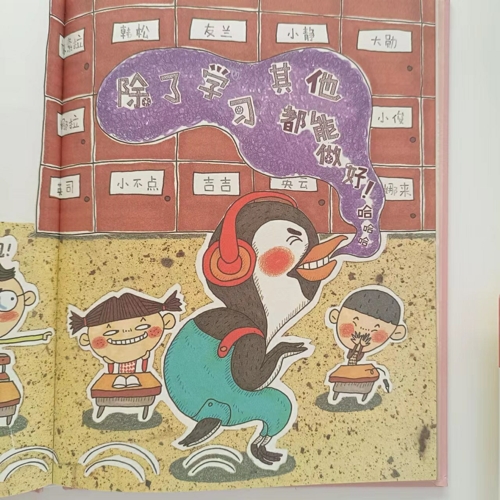 韩松
友兰
小静
大勋
小俊
小不点
吉吉
央云
娜来
除了学习
其他
都能
做
好！
哈
哈
哈